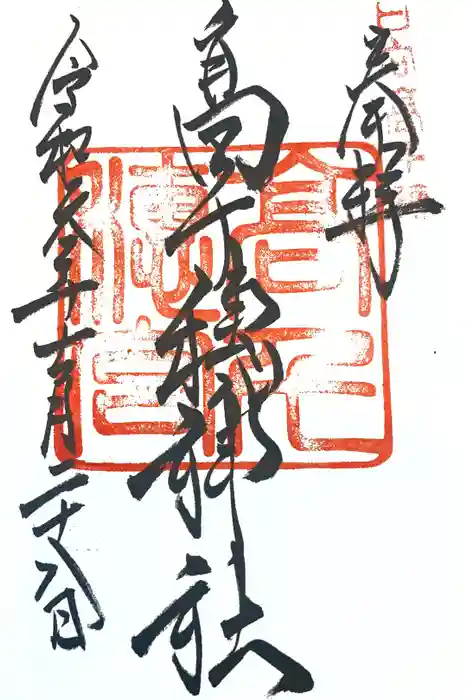 奉拝
高千穂神社
令和六年一月二十八日